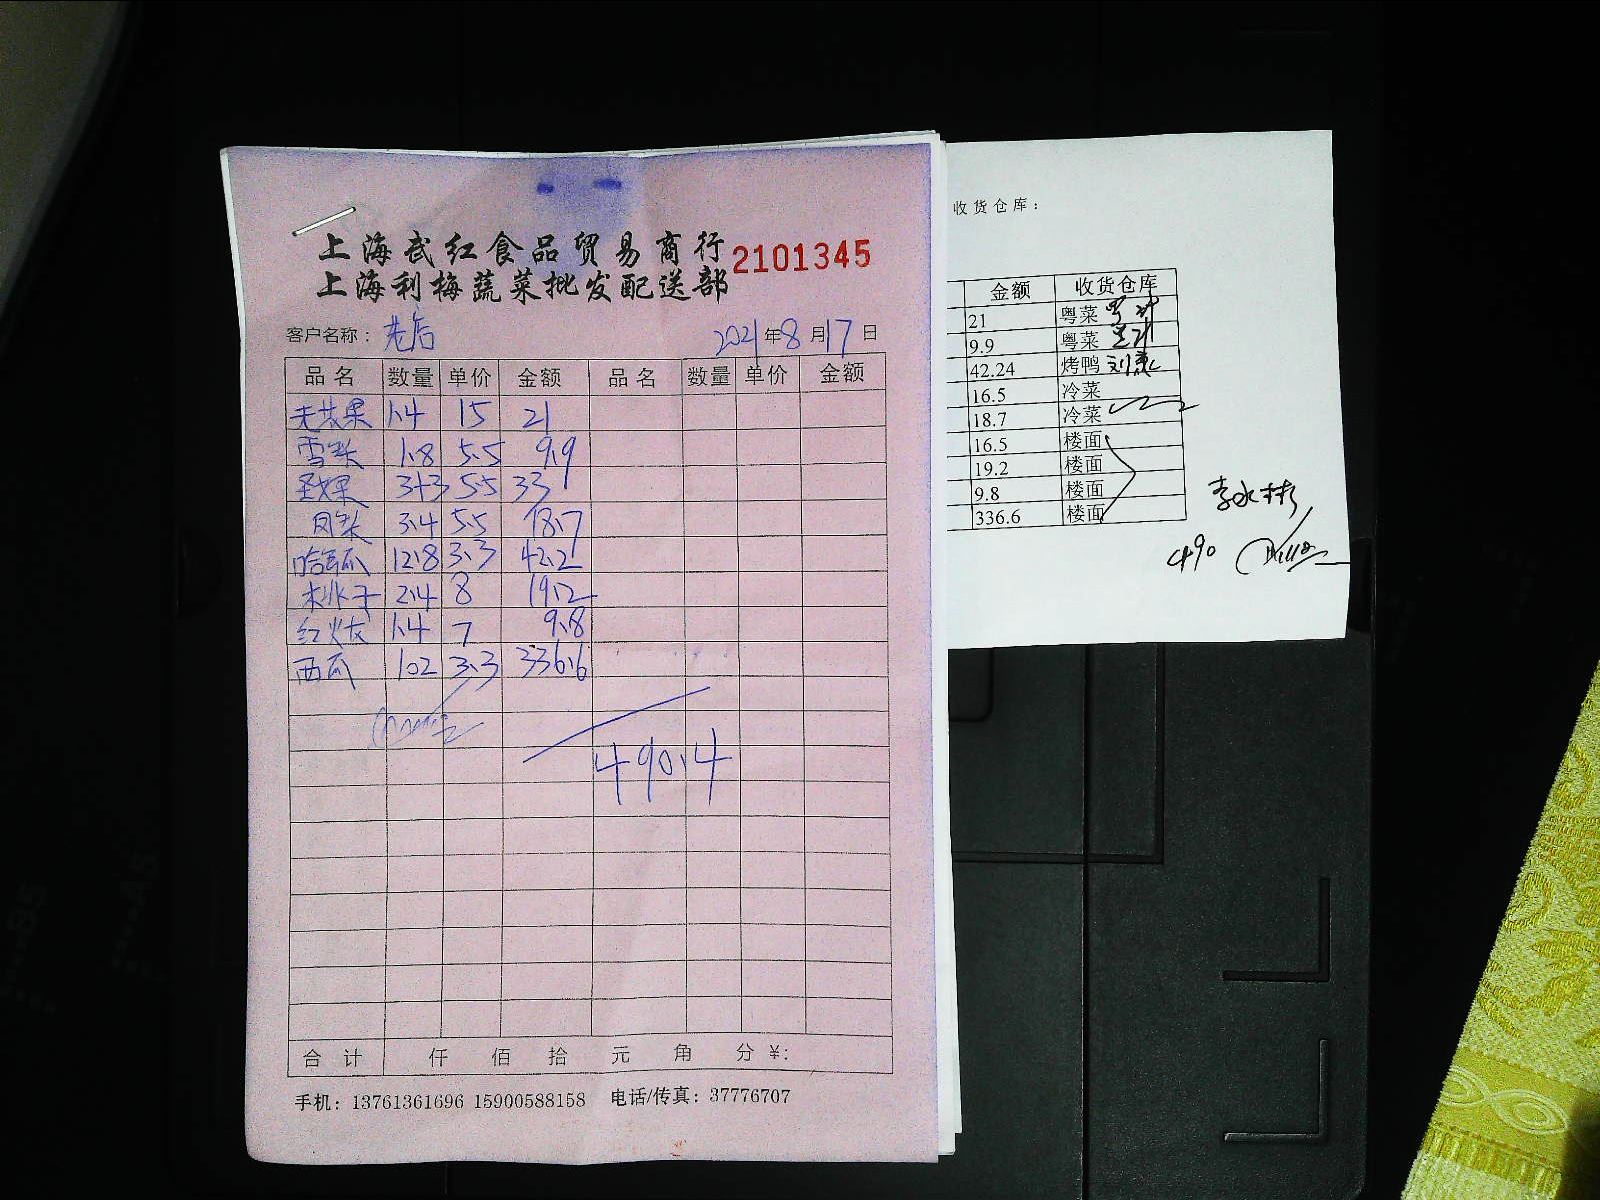 上海武红食品贸易商行
上海利梅蔬菜批发配送部
2101345
客户名称: 老店 2021年8月17日
品名 数量 单价 金额 品名 数量 单价 金额
1.4 15 21
雪梨 1.8 5.5 9.9
圣女果 3+3 5.5 33
3.4 5.5 18.7
哈蜜瓜 12.8 3.3 42.2
桃子 2.4 8 19.2
红火龙 1.4 7 9.8
西瓜 102 3.3 336.6
490.4
合计 仟 佰 拾 元 角 分 ¥:
手机: 13761361696 15900588158 电话/传真: 37776707
收货仓库:
金额 收货仓库
21 粤菜
9.9 粤菜
42.24 烤鸭
16.5 冷菜
18.7 冷菜
16.5 楼面
19.2 楼面
9.8 楼面
336.6 楼面
李永彬
490